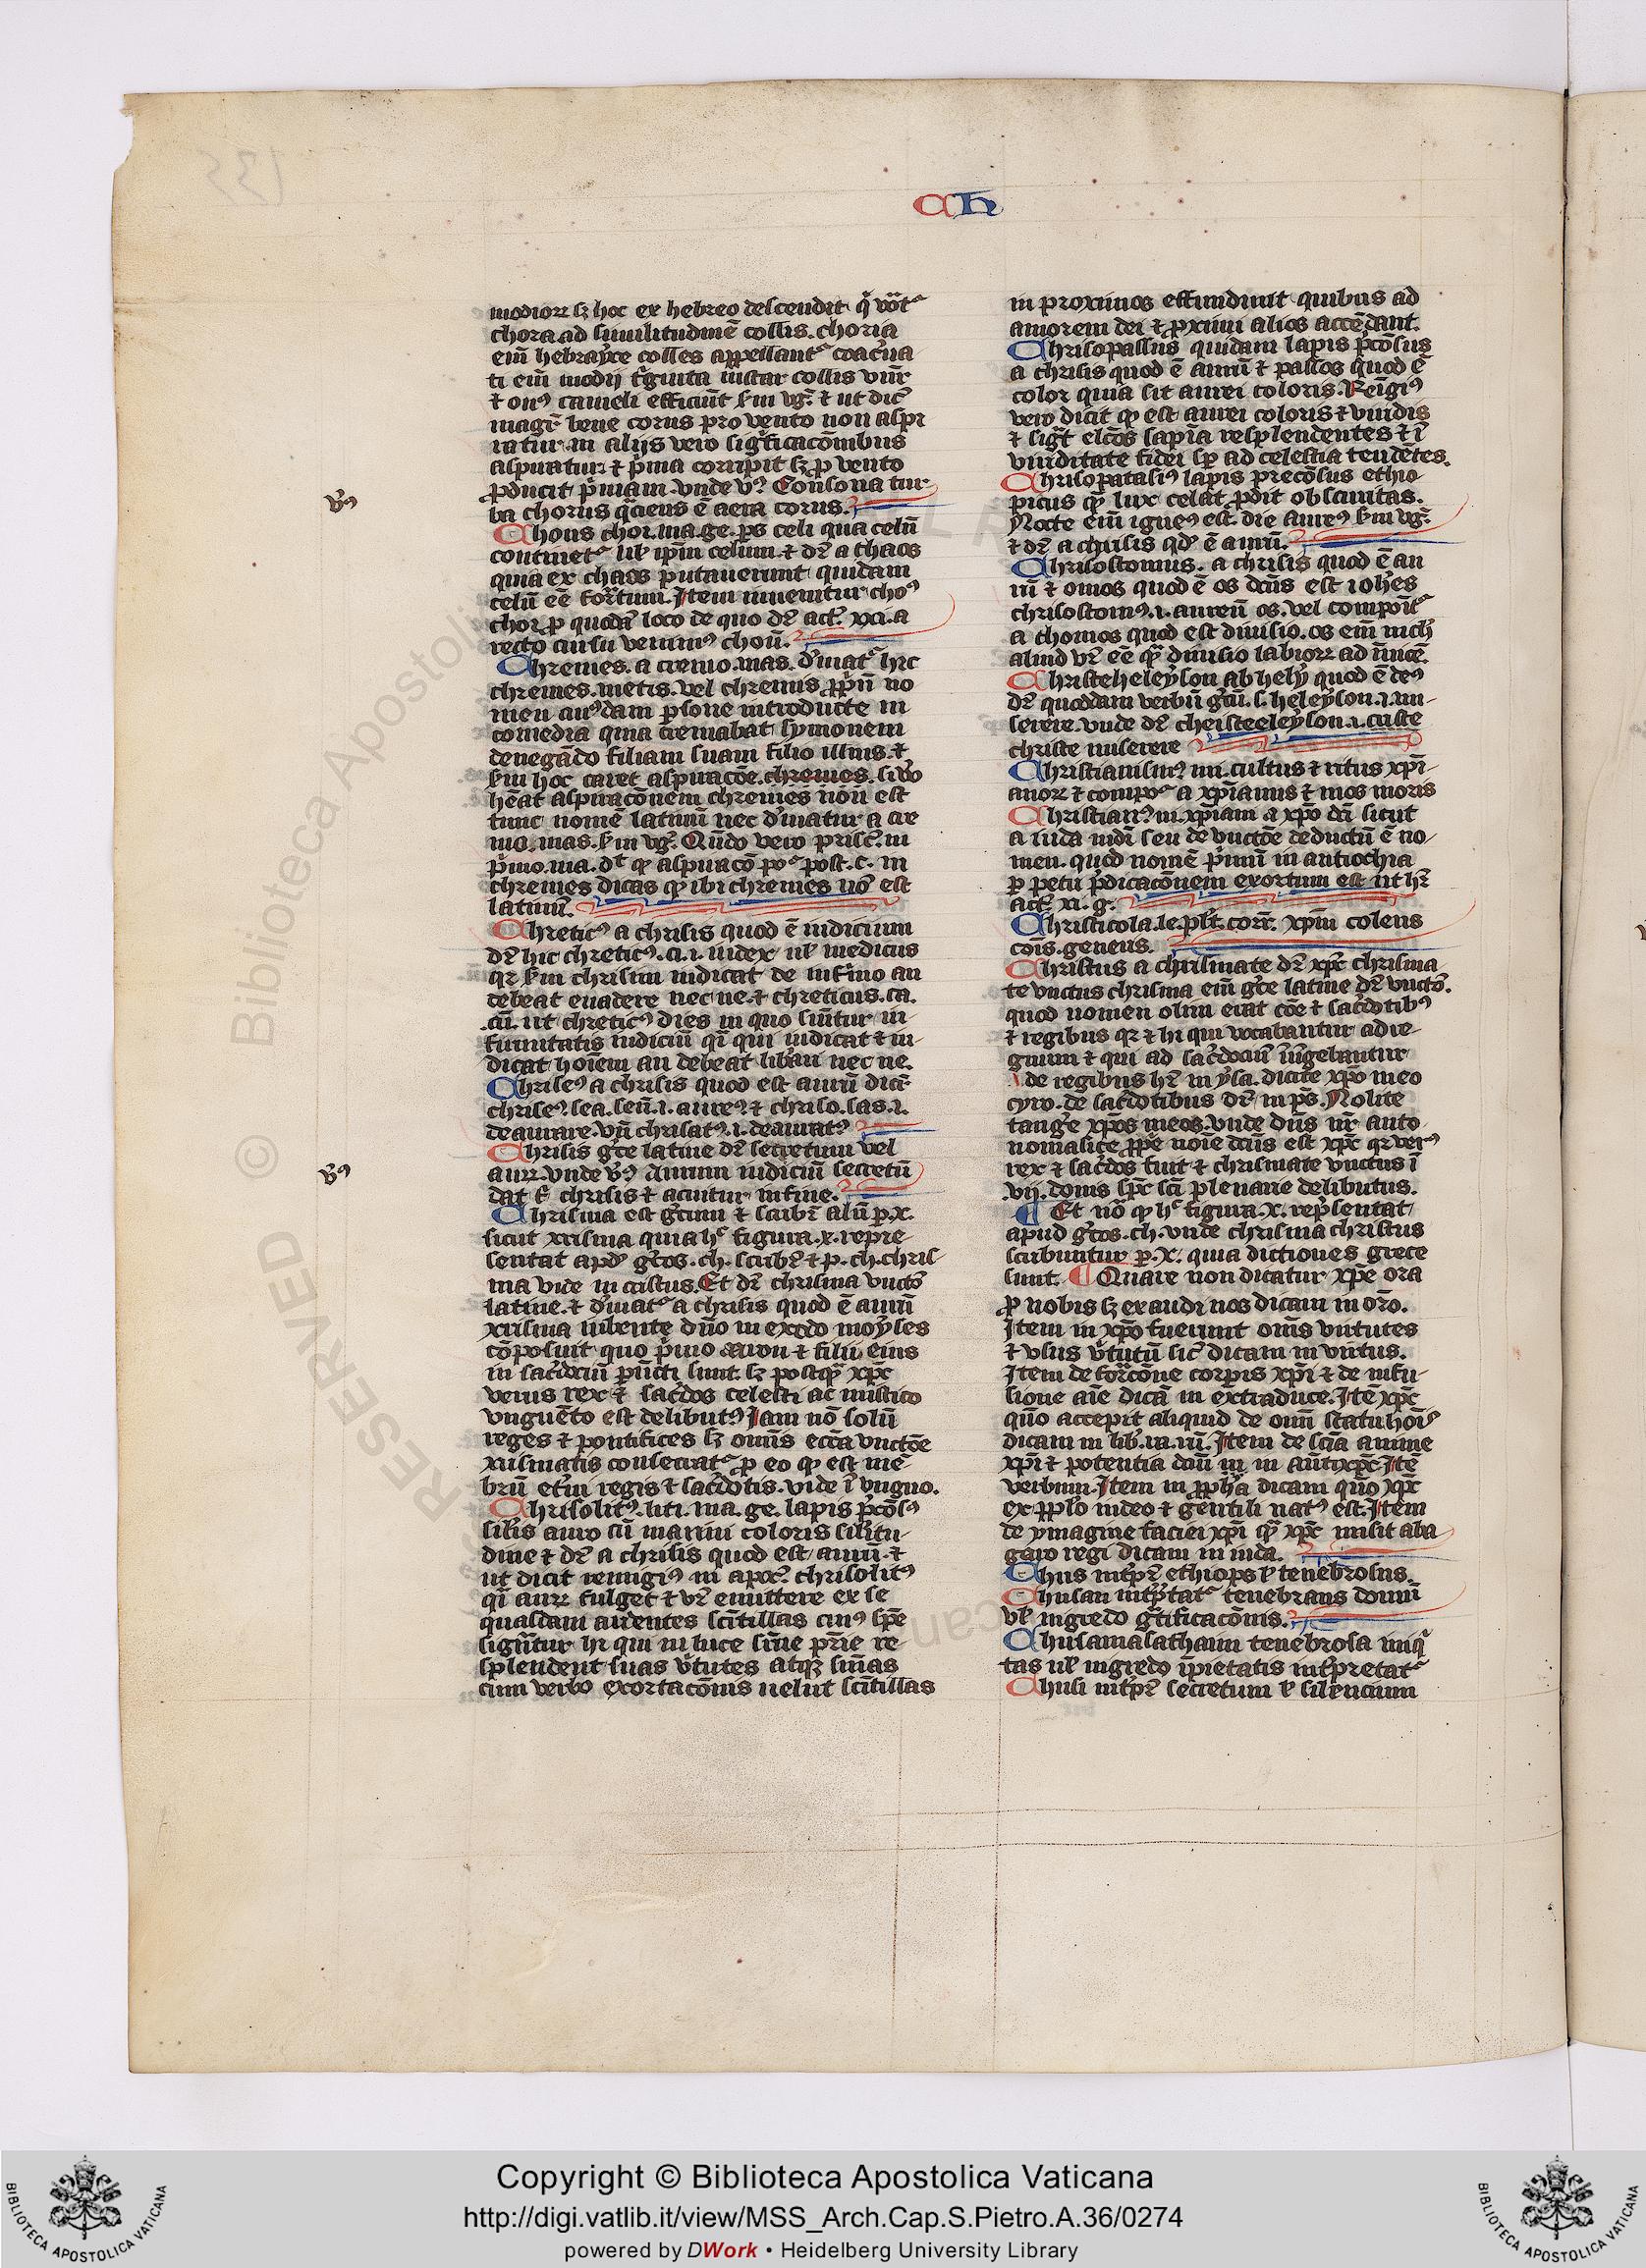 CH
modioꝝ sꝫ hoc ex hebreo descendit q̉ vocatᷣ
chora ad similitudinē collis. choria
eī hebrayce colles appellantᷣ coac̉ua
ti eī modij t̉ginta instar collis vnr̄
⁊ onꝰ cameli efficiūt ẜm vg̉. ⁊ ut dic̄
magr̄ bene corus pro vento non aspi
ratur in alijs vero sig̉ficacōnibus
aspiratur ⁊ p̉ma corripit sꝫ ꝓ vento
ꝓducit p̉mam. vnde vꝰ. Consona tur
ba chorus q̉ciens ē aera corus.
vꝰꝰ
Chous chor. ma. ge. ps celi qua celū
continetᷣ ul̉ ipm̄ celum. ⁊ dr̄ a chaos
quia ex chaos putauerunt quidam
celū eē formatum. Item inuenitur choꝰ
chor ꝓ quodā loco de quo dr̄ act̉. xxi. a
recto cursu venimꝰ choū.
Chremes. a cremo. mas. d̉iuatᷣ hic
chremes. metis. vel chremis ꝓp̉ū no
men cuiꝰdam ꝑsone introducte in
comedia quia cremabat symonem
denegādo filiam suam filio illius. ⁊
ẜm hoc caret aspiracōe. chremes. si v̉o
hēat aspiracōnem chremes nōn est
tunc nomē latinū nec d̉iuatur a cre
mo. mas. ẜm vg̉. Qn̄do vero prisc̉. in
p̉mo. ma. dt̄ ꝙ aspiracō poᷣ post. c. in
chremes dicas ꝙ ibi chremes nō est
latinū.
Chreticꝰ a chrisis quod ē iudicium
dr̄ hic chreticꝰ. ci. i. iudex ul̉ medicus
qꝛ ẜm chrisim iudicat de infirmo an
debeat euadere nec ne. ⁊ chreticus. ca.
cū. ut chreticꝰ dies in quo sumitur in
firmitatis iudiciū qr̄ qui iudicat ⁊ in
dicat hoīem an debeat lib̉ari nec ne.
Chriseꝰ a chrisis quod est aurū dicit̉
chriseꝰ. sea. seū. i. aureꝰ. ⁊ chriso. sas. i.
deaurare. vn̄ chrisatꝰ. i. deauratꝰ.
Chrisis grece latine dr̄ secretum vel
aurꝝ. vnde vꝰ. Aurum iudiciū secretū
dat tibi chrisis ⁊ acuitur in fine.
vꝰꝰ
Chrisma est grecum ⁊ scribit̉ aliū ꝑ. x.
sicut xrisma quia hᷣ figura. x. repre
sentat apd̉ grecos. ch. scribit̉ ⁊ p. ch. chris
ma vide in cristus. Et dr̄ chrisma vnctō
latine. ⁊ d̉iuatᷣ a chrisis quod ē aurū
xrisma iubente dn̄o in exodo moyses
cōposuit quo p̉mo aaron ⁊ filii eius
in sac̉dociū ꝑuncti sunt. sꝫ postq̉ xp̄c
verus rex ⁊ sac̉dos celesti ac mistico
vnguēto est delibutꝰ. Iam nō solū
reges ⁊ pontifices sꝫ om̄is ecc̄a vnctōe
xrismatis consecratᷣ ꝓ eo ꝙ est me
brū et̉ni regis ⁊ sac̉dotis. vide ī vnguo.
Chrisolitꝰ. liti. ma. ge. lapis p̉ciosꝰ
sil̉is auro cū marini coloris sil̉itu
dine ⁊ dr̄ a chrisis quod est aurū. ⁊
ut dicit remigiꝰ in apoc̉. chrisolitꝰ
q̉i aurꝝ fulget ⁊ vr̄ emittere ex se
quasdam ardentes scītillas cuiꝰ sp̄e
signātur hi qui in luce sine pr̄ie re
splendent suas v̉tutes atqꝫ sūmas
cum verbo exortacōnis uelut scītillas
in proximos effundunt quibus ad
amorem dei ⁊ ꝓximi alios accēdant.
Chrisopassus quidam lapis p̉ciosus
a chrisis quod ē aurū ⁊ passos quod ē
color quia sit aurei coloris. Remigiꝰ
vero dicit ꝙ est aurei coloris ⁊ viridis
⁊ sig̉t elc̄os sapīa resplendentes ⁊ ī
viriditate fidei sp̄ ad celestia tendētes.
Chrisopatasiꝰ lapis preciōsus ethio
picus quē lux celat ꝓdit obscuritas.
Nocte eī igneꝰ est. die aureꝰ ẜm vg̉.
⁊ dr̄ a chrisis qd̉ ē aurū.
Chrisostomus. a chrisis quod ē au
rū ⁊ omos quod ē os dc̄us est ioh̄es
chrisostomꝰ. i. aureū os. vel componitᷣ
a chomos quod est diuisio. os eī nich̉
aliud vr̄ eē q̉ diuisio labioꝝ ad inuicē.
Christeheleyson ab hely quod ē deꝰ
dr̄ quoddam verbū grecū. s. heleyson. i. mi
serere. vnde dr̄ cheisteeleyson. i. criste
christe miserere
Christianismꝰ. mi. cultus ⁊ ritus xp̄i
anoꝝ ⁊ compoᷣ a xp̄ianus ⁊ mos moris
Christianꝰ. ni. xp̄iani a xp̄o dc̄i sicut
a iuda iudei seu de vnctōe deductū ē no
men. quod nomē p̉mū in antiochia
ꝑ petri p̉dicacōnem exortum est ut hr̄
act̉. xi. g.
Christicola. le. pl̉t. corr̄. xp̄m colens
cōis. generis.
Christus a chrismate dr̄ xp̄c chrisma
te vnctus chrisma eī grece latine dr̄ vnctō.
quod nomen olim erat cōe ⁊ sac̉dotibꝰ
⁊ regibus qꝛ ⁊ hi qui vocabantur ad re
gnum ⁊ qui ad sac̉dociū ungebantur
de regibus hr̄ in ysa. dicite xp̄o meo
cyro. de sac̉dotibus dr̄ in ps. Nolite
tang̉e xp̄os meos. vnde dn̄s nr̄ anto
nomasice ꝓp̉e noīe dc̄us est xp̄c qꝛ verꝰ
rex ⁊ sac̉dos fuit ⁊ chrismate vnctus ī
.vij. donis sp̄c sc̄i plenarie delibutus.
¶ Et nō ꝙ hᷣ figura. x. rep̉sentat
apud grecos. ch. vnde chrisma christus
scribuntur ꝑ. x. quia dictiones grece
sunt. ¶ Quare non dicatur xp̄e ora
ꝓ nobis sꝫ exaudi nos dicam in or̄o.
Item in xp̄o fuerunt om̄s virtutes
⁊ vsus v̉tutū sic̉ dicam in virtus.
Item de formacōne corpis xp̄i ⁊ de infu
sione aīe dicā in extraduce. Itē xp̄c
quō accepit aliquid de om̄i statu hoīs
dicam in lib. iii. iii. Item de scīa anime
xp̄i ⁊ potentia domini in antixp̄c. Itē
verbum. Item in ꝓph̄ia dicam quō xp̄c
ex ꝓpl̉o iudeo ⁊ gentili natꝰ est. Item
de ymagine faciei xp̄i quā xp̄c misit aba
garo regi dicam in iuda.
Chus int̉pr̄ ethiops ul̉ tenebrosus.
Chusan int̉p̉tatᷣ tenebrans domini
ul̉ ingredo g̉tificacōnis.
Chusamasathaim tenebrosa iniq̉
tas ul̉ ingredo īpietatis int̉pretatᷣ
Chusi int̉pr̄ secretum ul̉ silencium
Copyright © Biblioteca Apostolica Vaticana
http://digi.vatlib.it/view/MSS_Arch.Cap.S.Pietro.A.36/0274
powered by DWork • Heidelberg University Library
BIBLIOTECA APOSTOLICA VATICANA
BIBLIOTECA APOSTOLICA VATICANA